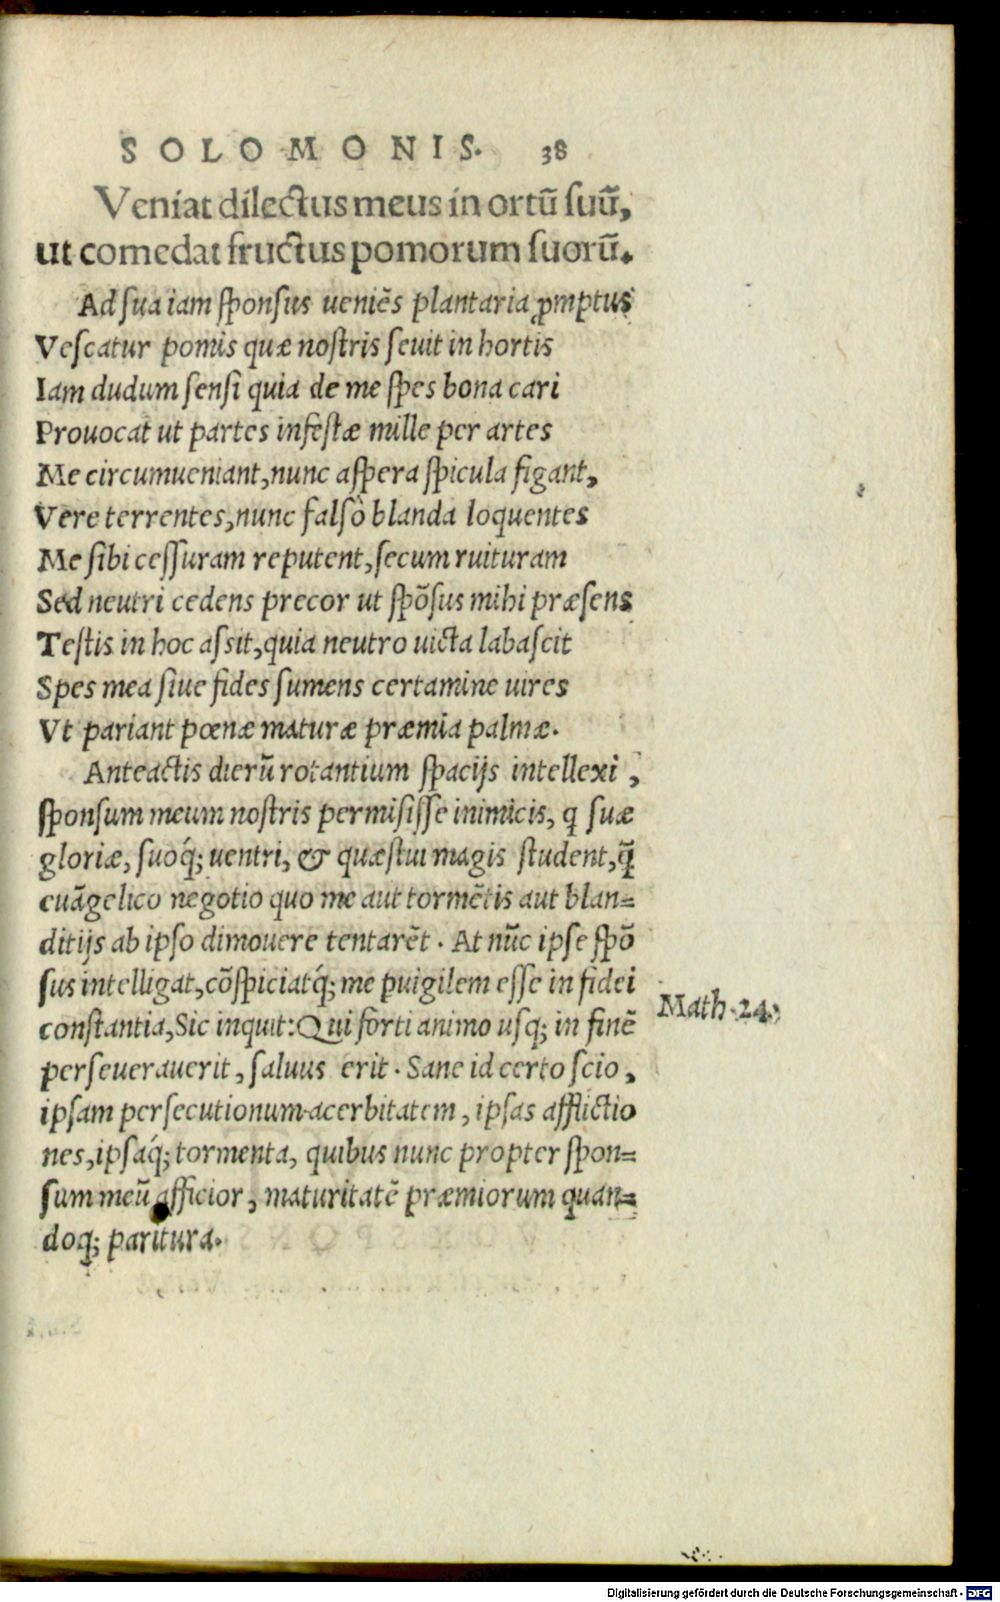 SOLOMONIS. 38
Veniat dilectus meus in ortū suū,
ut comedat fructus pomorum suorū.
Ad sua iam sponsus ueniēs plantaria ꝓmptus
Vescatur pomis quæ nostris seuit in hortis
Iam dudum sensi quia de me spes bona cari
Prouocat ut partes infestæ mille per artes
Me circumueniant, nunc aspera spicula figant,
Vere terrentes, nunc falsò blanda loquentes
Me sibi cessuram reputent, secum ruituram
Sed neutri cedens precor ut spōsus mihi præsens
Testis in hoc assit, quia neutro uicta labascit
Spes mea siue fides sumens certamine uires
Vt pariant pœnæ maturæ præmia palmæ.
Anteactis dierū rotantium spacijs intellexi,
sponsum meum nostris permisisse inimicis, ꝙ suæ
gloriæ, suoq́; uentri, & quæstui magis student, q̄
euāgelico negotio quo me aut tormētis aut blan=
ditijs ab ipso dimouere tentarēt. At nūc ipse spō
sus intelligat, cōspiciatq́; me ꝑuigilem esse in fidei
constantia, Sic inquit: Qui forti animo usq; in finē
perseuerauerit, saluus erit. Sane id certo scio,
ipsam persecutionum acerbitatem, ipsas afflictio
nes, ipsaq́; tormenta, quibus nunc propter spon=
sum meū afficior, maturitatē præmiorum quan=
doq; paritura.
Math. 24.
Digitalisierung gefördert durch die Deutsche Forschungsgemeinschaft - DFG